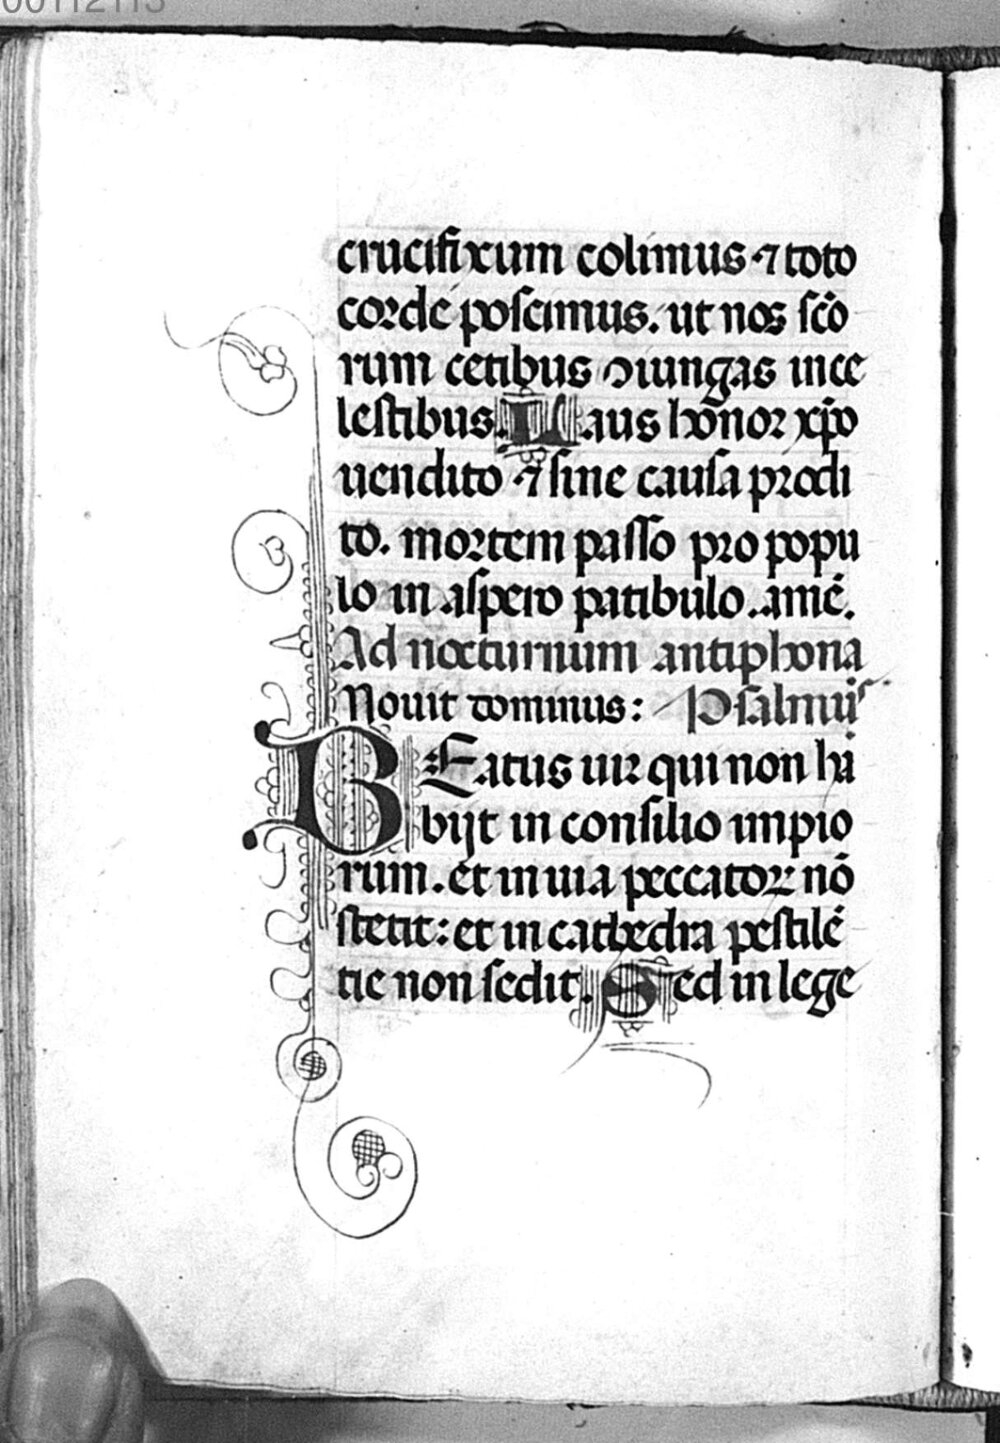 00112113
crucifixum colimus ⁊ toto
corde poscimus. ut nos sc̄o
rum cetibus ↄiungas in ce
lestibus. Laus honor xp̄o
uendito ⁊ sine causa prodi
to. mortem passo pro popu
lo in aspero patibulo. amē.
Ad nocturnum antiphona
Nouit dominus: Psalmus
BEatus uir qui non ha
bijt in consilio impio
rum. et in uia peccatoꝝ nō
stetit: et in cathedra pestilē
tie non sedit. Sed in lege